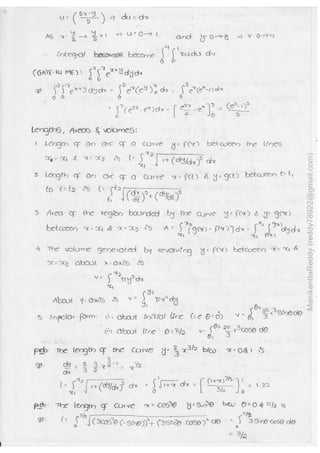 u = (2x-y / 2) ⇒ du = dx
As x: y/2 → y/2 + 1 ⇒ u: 0 → 1 and y: 0→8 ⇒ v: 0→4
∴ integral become ∫₀⁴ ∫₀¹ 2u du dv
(GATE-14 ME): ∫₀² ∫₀ˣ e^(x+y) dy dx
Lengths, Areas & volumes:
1. Length of an arc of a curve y = f(x) between the lines
x = x₁ & x = x₂ is l = ∫_{x₁}^{x₂} √(1 + (dy/dx)²) dx
2. Length of an arc of a curve x = f(t) & y = g(t) between t = t₁
to t = t₂ is l = ∫_{t₁}^{t₂} √((dx/dt)² + (dy/dt)²)
3. Area of the region bounded by the curve y = f(x) & y = g(x)
between x = x₁ & x = x₂ is A = ∫_{x₁}^{x₂} [g(x) - f(x)] dx = ∫_{x₁}^{x₂} ∫_{f(x)}^{g(x)} dy dx
4. The volume generated by revolving y = f(x) between x = x₁ &
x = x₂ about x-axis is
v = ∫_{x₁}^{x₂} πy² dx
About y-axis is v = ∫_{y₁}^{y₂} πx² dy
5. In polar form: (i) about initial line (i.e θ = 0) v = ∫_{θ₁}^{θ₂} 2π/3 r³ sinθ dθ
(ii) about line θ = π/2 v = ∫_{θ₁}^{θ₂} 2π/3 r³ cosθ dθ
pbb: The length of the curve y = 2/3 x^(3/2) b/w x = 0 & 1 is
dy/dx = 2/3 · 3/2 x^(3/2 - 1) = x^(1/2)
l = ∫_{x₁}^{x₂} √(1 + (dy/dx)²) dx = ∫₀¹ √(1+x) dx = [(1+x)^(3/2) / (3/2)]₀¹ = 1.22
pbb: The length of curve x = cos³θ y = sin³θ b/w θ = 0 & π/2 is
= 3/2
ManikantaReddy (reddy78922@gmail.com)